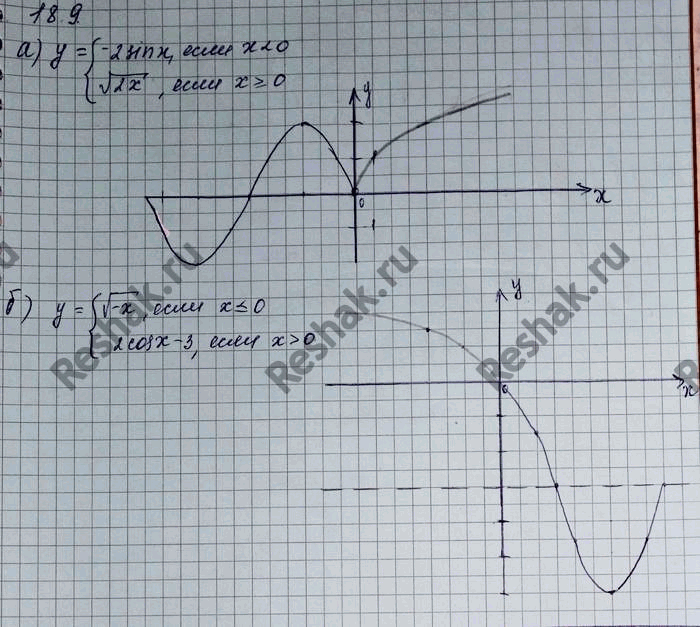 18.9.
а) y = { -2sinx, если x<0
√2x , если x ≥ 0
y
x
0
1
б) y = { √-x, если x ≤ 0
2cosx-3, если x>0
y
x
0
Reshak.ru
Reshak.ru
Reshak.ru